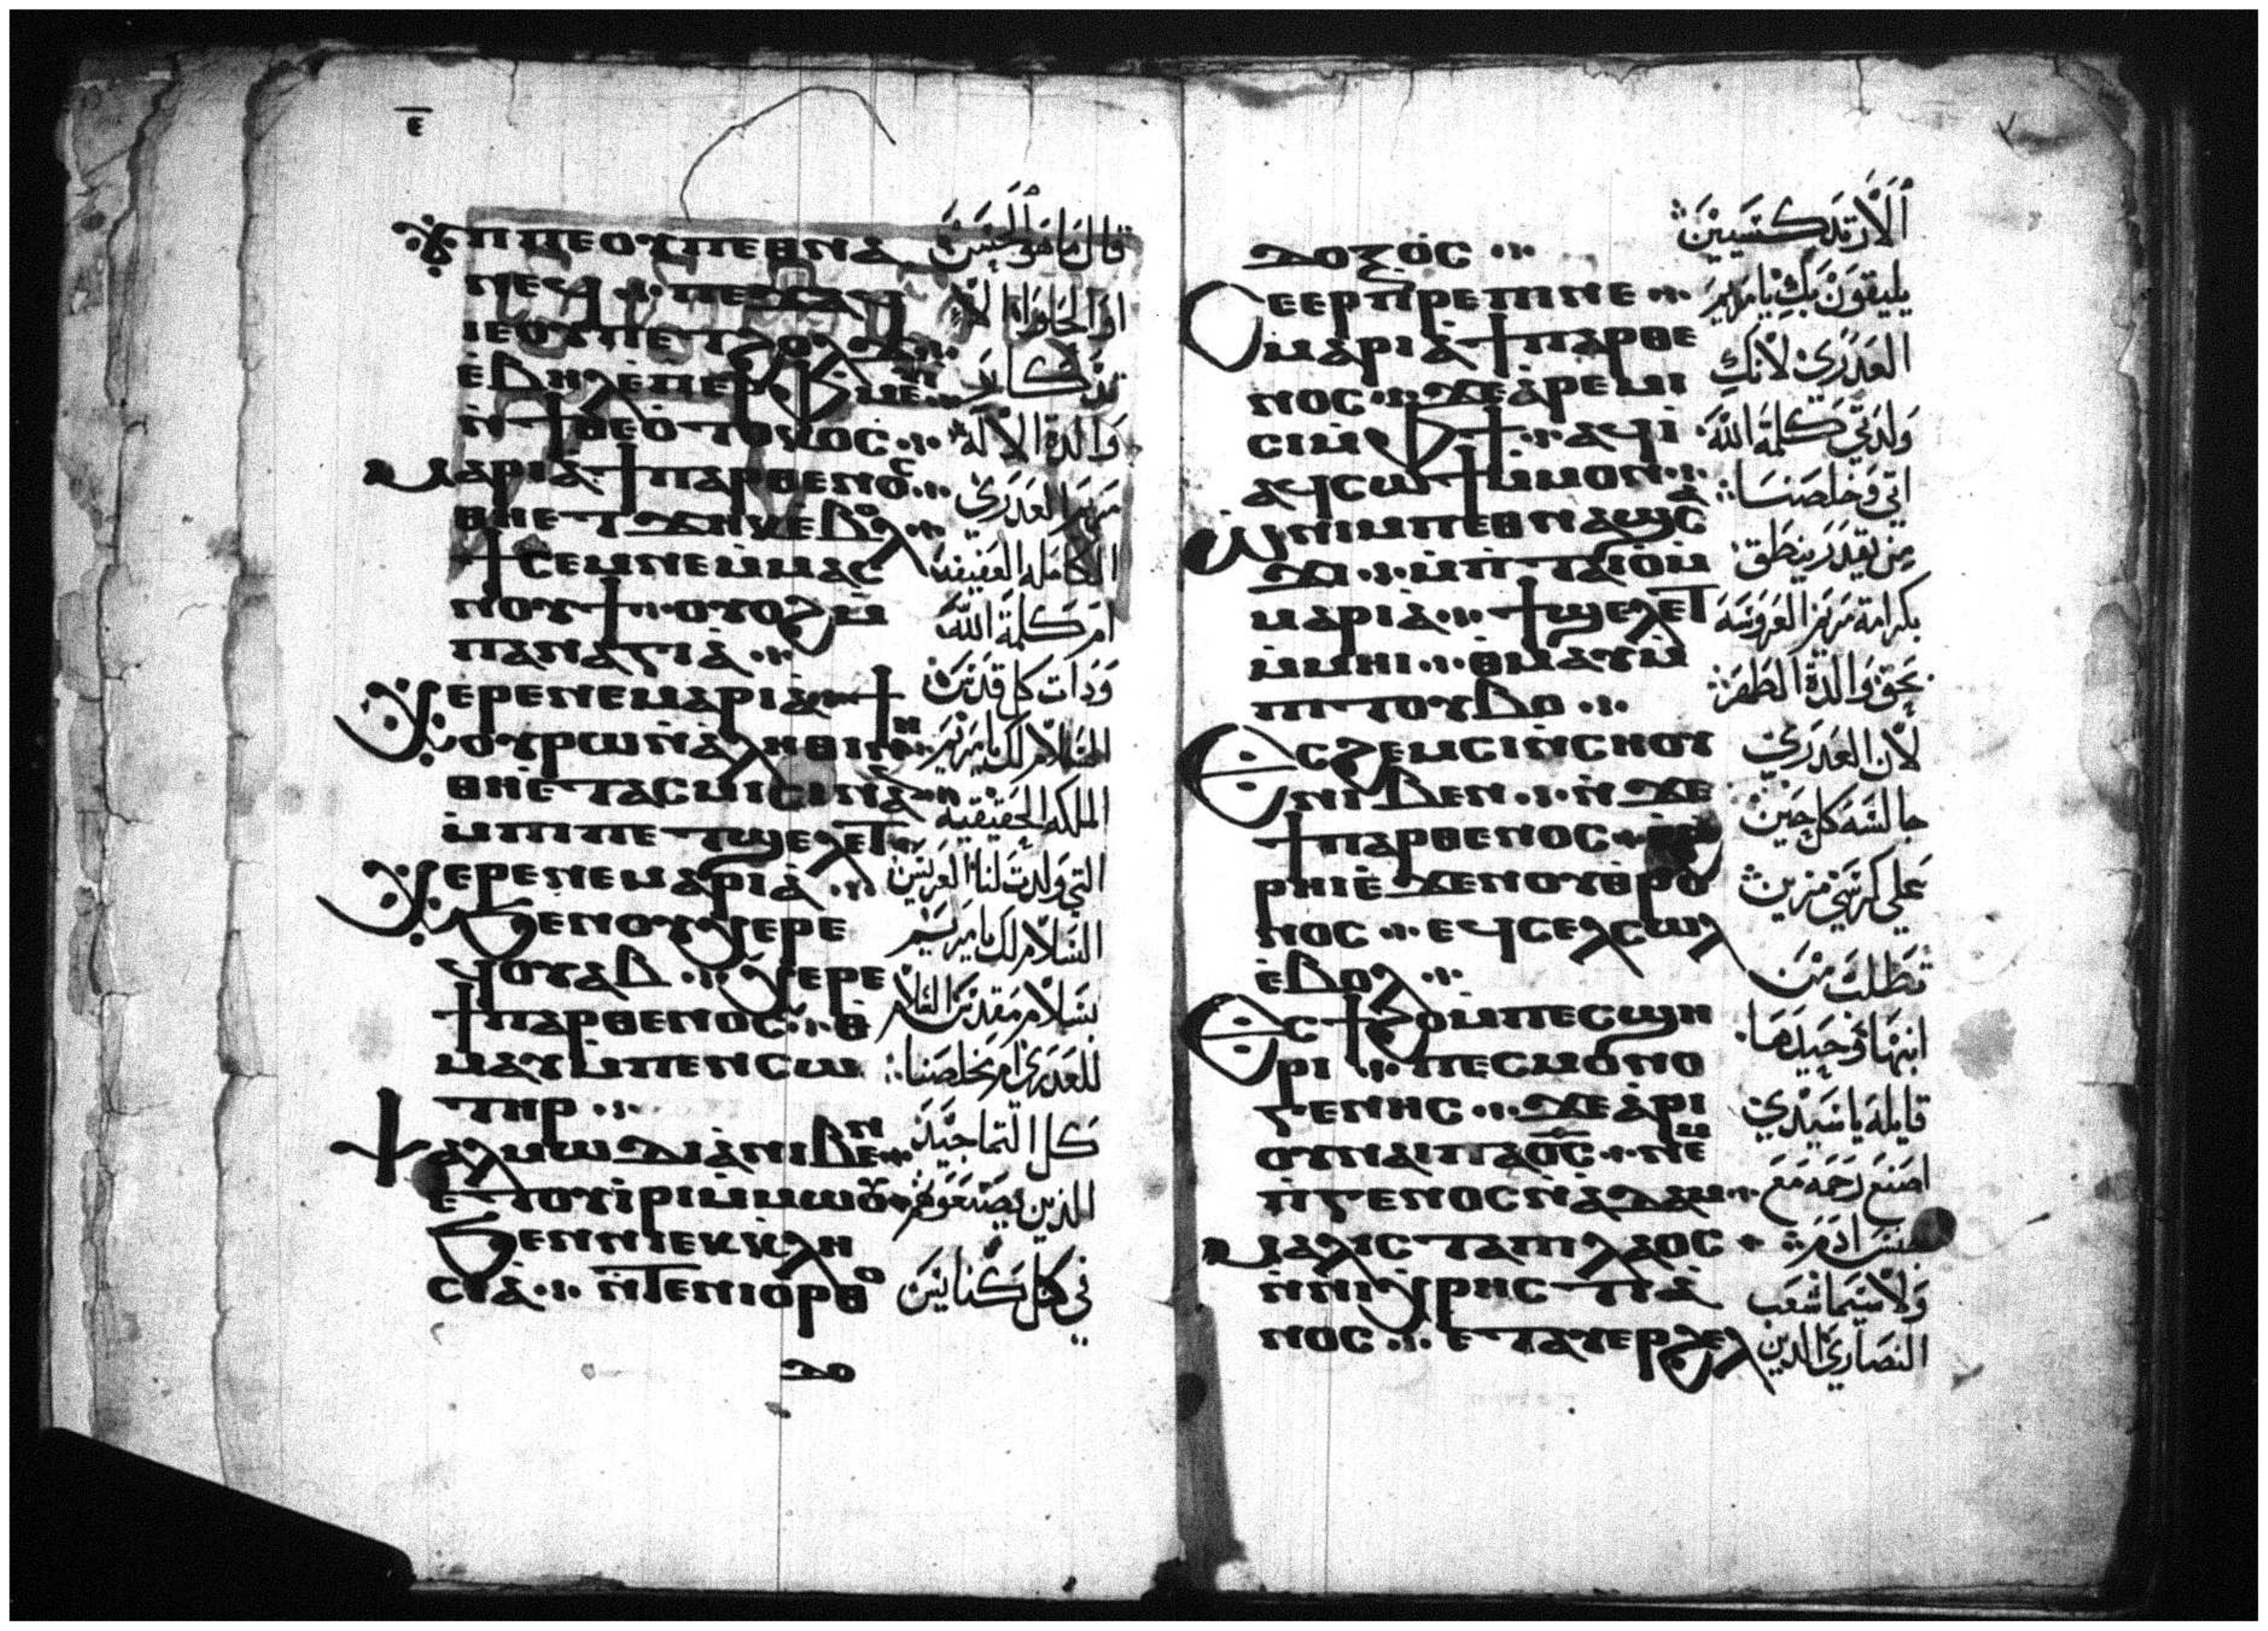 ⲉ̅
ϫⲡⲡⲉⲟⲩⲡⲉⲑⲛⲁ
ⲛⲉϥ ⲡⲉϫⲁϥ
ⲓⲉⲟⲩⲡⲉⲧϩⲟⲗϫ
ⲉ̀ⲃⲏⲗⲉ̀ⲡⲉⲣⲫⲙⲉⲩⲓ̀
ⲛ̀ϯⲑⲉⲟ̀ⲧⲟⲕⲟⲥ
ⲙⲁⲣⲓⲁ̀ϯⲡⲁⲣⲑⲉⲛⲟⲥ
ⲑⲏⲉⲧϫⲏⲕⲉⲃⲟⲗ
ϯⲥⲉⲙⲛⲉⲙ̀ⲙⲁⲥ
ⲛⲟⲩϯ ⲟⲩⲟϩⲙ̀
ⲡⲁⲛⲁⲅⲓⲁ̀
ⲭⲉⲣⲉⲛⲉⲙⲁⲣⲓⲁ̀ ϯ
ⲟⲩⲣⲱⲛ̀ⲁⲗⲏⲑⲓⲛⲏ
ⲑⲏⲉ̀ⲧⲁⲥⲙⲓⲥⲓⲛⲁⲛ
ⲙ̀ⲡⲓⲡⲉⲧϣⲉⲗⲉⲧ
ⲭⲉⲣⲉⲛⲉⲙⲁⲣⲓⲁ̀
ϧⲉⲛⲟⲩⲭⲉⲣⲉ
ϥⲟⲩⲁⲃ ⲭⲉⲣⲉ
ϯⲡⲁⲣⲑⲉⲛⲟⲥ ⲑ
ⲙⲁⲩⲙ̀ⲡⲉⲛⲥⲱ
ⲧⲏⲣ
ⲯⲁⲗⲙⲱⲇⲓⲁ̀ⲛⲓⲃⲉⲛ
ⲉⲧⲟⲩⲓ̀ⲣⲓⲙ̀ⲙⲱⲟⲩ
ϧⲉⲛⲛⲓⲉⲕⲕⲗⲏ
ⲥⲓⲁ̀ ⲛ̀ⲧⲉⲛⲓⲟⲣⲑⲟ
ⲇⲟ
قال ما هو الحسن
او الحلاوة الا
تذكار
والدة الاله
مريم العدرى
الكامله العفيفه
ام كلمة الله
وذات كل قدس
السلام لك يا مريم
الملكه الحقيقيه
التي ولدت لنا العريس
السلام لك يا مريم
بسلام مقدس السلام
للعدرى ام مخلصنا
كل التماجيد
الذين يصنعوهم
في كل كنايس
ⲇⲟⲝⲟⲥ
ⲥⲉⲉⲣⲡⲣⲉⲡⲓⲛⲉ
ⲙⲁⲣⲓⲁ̀ϯⲡⲁⲣⲑⲉ
ⲛⲟⲥ ϫⲉⲁ̀ⲣⲉⲙⲓ
ⲥⲓⲙ̀ⲫϯ ⲁϥⲓ̀
ⲁϥⲥⲱϯⲙ̀ⲙⲟⲛ
ⲱⲛⲓⲙⲡⲉⲑⲛⲁϣⲥⲁ
ϫⲓ ⲙ̀ⲡⲧⲁⲓⲟⲙ̀
ⲙⲁⲣⲓⲁ̀ ϯϣⲉⲗⲉⲧ
ⲙ̀ⲙⲏⲓ ⲑⲙⲁⲩⲙ̀
ⲡⲓⲧⲟⲩⲃⲟ
ⲉⲥϩⲉⲙⲥⲓⲛ̀ⲥⲏⲟⲩ
ⲛⲓⲃⲉⲛ ⲛ̀ϫⲉ
ϯⲡⲁⲣⲑⲉⲛⲟⲥ ϩ
ⲣⲏⲓⲉ̀ϫⲉⲛⲟⲩⲑⲣⲟ
ⲛⲟⲥ ⲉϥⲥⲉⲗⲥⲱⲗ
ⲉ̀ⲃⲟⲗ
ⲉⲥϯϩⲟⲙ̀ⲡⲉⲥϣⲏ
ⲣⲓ ⲡⲉⲥⲙⲟⲛⲟ
ⲅⲉⲛⲏⲥ ϫⲉⲁ̀ⲣⲓ
ⲟⲩⲛⲁⲓⲡⲁⲟ̅ⲥ̅ ⲛⲉⲙ
ⲡ̀ⲅⲉⲛⲟⲥⲛ̀ⲁⲇⲁⲙ
ⲙⲁⲗⲓⲥⲧⲁⲡⲓⲗⲁⲟⲥ
ⲛ̀ⲛⲓⲭⲣⲏⲥⲧⲓⲁ̀
ⲛⲟⲥ ⲉⲧⲁⲩⲉⲣϩⲉⲗ
الارتدكسيين
يليقون بك يا مريم
العدرى لانك
ولدتي كلمة الله
اتى وخلصنا
من يقدر ينطق
بكرامة مريم العروسه
بحق والدة الطهر
لان العدرى
جالسه كل حين
على كرسي مزين
تطلب من
ابنها وحيدها
قايله يا سيدي
اصنع رحمه مع
جنس ادم
ولا سيما شعب
النصارى الدين